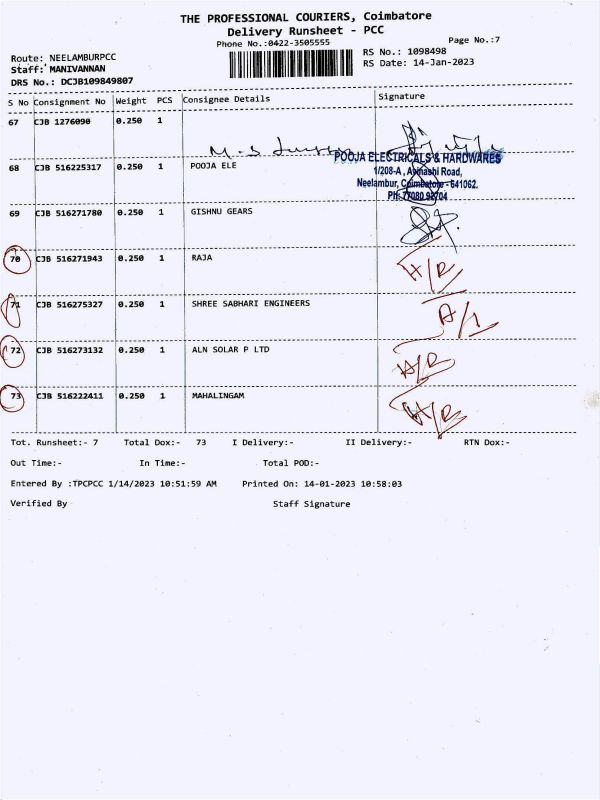 THE PROFESSIONAL COURIERS, Coimbatore
Delivery Runsheet - PCC
Phone No.:0422-3505555
Page No.:7
Route: NEELAMBURPCC
RS No.: 1098498
Staff: MANIVANNAN
RS Date: 14-Jan-2023
DRS No.: DCJB109849807
S No Consignment No Weight PCS Consignee Details Signature
67 CJB 1276090 0.250 1
68 CJB 516225317 0.250 1 POOJA ELE
POOJA ELECTRICALS & HARDWARES
1/208-A, Avinashi Road,
Neelambur, Coimbatore - 641062.
69 CJB 516271780 0.250 1 GISHNU GEARS
70 CJB 516271943 0.250 1 RAJA
71 CJB 516275327 0.250 1 SHREE SABHARI ENGINEERS
72 CJB 516273132 0.250 1 ALN SOLAR P LTD
73 CJB 516222411 0.250 1 MAHALINGAM
Tot. Runsheet:- 7 Total Dox:- 73 I Delivery:- II Delivery:- RTN Dox:-
Out Time:- In Time:- Total POD:-
Entered By :TPCPCC 1/14/2023 10:51:59 AM Printed On: 14-01-2023 10:58:03
Verified By Staff Signature